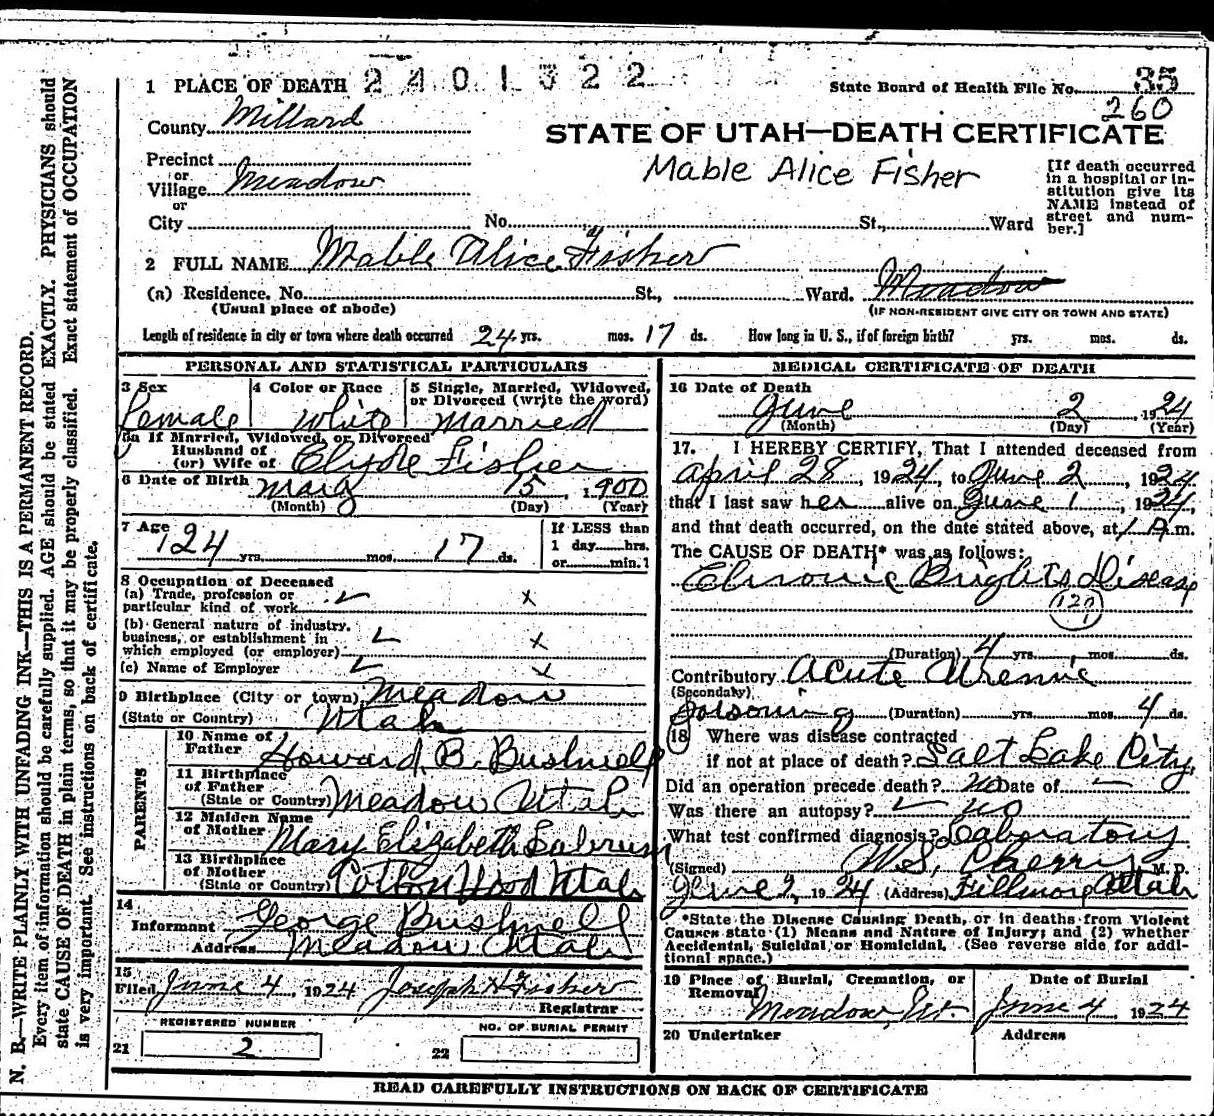 1 PLACE OF DEATH 2401322
State Board of Health File No. 35
260
County Millard
STATE OF UTAH—DEATH CERTIFICATE
Mable Alice Fisher
Precinct
or
Village Meadow
or
City No. St., Ward
[If death occurred
in a hospital or in-
stitution give its
NAME instead of
street and num-
ber.]
2 FULL NAME Mable Alice Fisher
(a) Residence. No. St., Ward. Meadow
(Usual place of abode) (IF NON-RESIDENT GIVE CITY OR TOWN AND STATE)
Length of residence in city or town where death occurred 24 yrs. mos. 17 ds. How long in U. S., if of foreign birth? yrs. mos. ds.
PERSONAL AND STATISTICAL PARTICULARS
3 Sex
female
4 Color or Race
White
5 Single, Married, Widowed,
or Divorced (write the word)
Married
5a If Married, Widowed, or Divorced
Husband of
(or) Wife of Clyde Fisher
6 Date of Birth May 15, 1900
(Month) (Day) (Year)
7 Age
24 yrs. mos. 17 ds.
If LESS than
1 day hrs.
or min.
8 Occupation of Deceased
(a) Trade, profession or
particular kind of work x
(b) General nature of industry,
business, or establishment in
which employed (or employer) x
(c) Name of Employer x
9 Birthplace (City or town) Meadow
(State or Country) Utah
PARENTS
10 Name of
Father Howard B. Bushnell
11 Birthplace
of Father
(State or Country) Meadow Utah
12 Maiden Name
of Mother Mary Elizabeth Labrum
13 Birthplace
of Mother
(State or Country) Cotton Wood Utah
14
Informant George Bushnell
Address Meadow Utah
15
Filed June 4, 1924 Joseph H Fisher
Registrar
REGISTERED NUMBER
21 2
NO. OF BURIAL PERMIT
22
MEDICAL CERTIFICATE OF DEATH
16 Date of Death
June 2, 1924
(Month) (Day) (Year)
17. I HEREBY CERTIFY, That I attended deceased from
April 28, 1924, to June 2, 1924
that I last saw her alive on June 1, 1924,
and that death occurred, on the date stated above, at 1 A.m.
The CAUSE OF DEATH* was as follows:
Chronic Brights Disease
(Duration) 4 yrs. mos. ds.
Contributory Acute Uremic
(Secondary)
Poisoning (Duration) yrs. mos. 4 ds.
18 Where was disease contracted
if not at place of death? Salt Lake City
Did an operation precede death? No Date of —
Was there an autopsy? no
What test confirmed diagnosis? Laboratory
(Signed) W.S. Cherry M.D.
June 2, 1924 (Address) Fillmore Utah
*State the Disease Causing Death, or in deaths from Violent
Causes state (1) Means and Nature of Injury; and (2) whether
Accidental, Suicidal or Homicidal. (See reverse side for addi-
tional space.)
19 Place of Burial, Cremation, or
Removal
Meadow, Ut.
Date of Burial
June 4, 1924
20 Undertaker
Address
READ CAREFULLY INSTRUCTIONS ON BACK OF CERTIFICATE
N. B.—WRITE PLAINLY WITH UNFADING INK—THIS IS A PERMANENT RECORD.
Every item of information should be carefully supplied. AGE should be stated EXACTLY. PHYSICIANS should
state CAUSE OF DEATH in plain terms, so that it may be properly classified. Exact statement of OCCUPATION
is very important. See instructions on back of certificate.